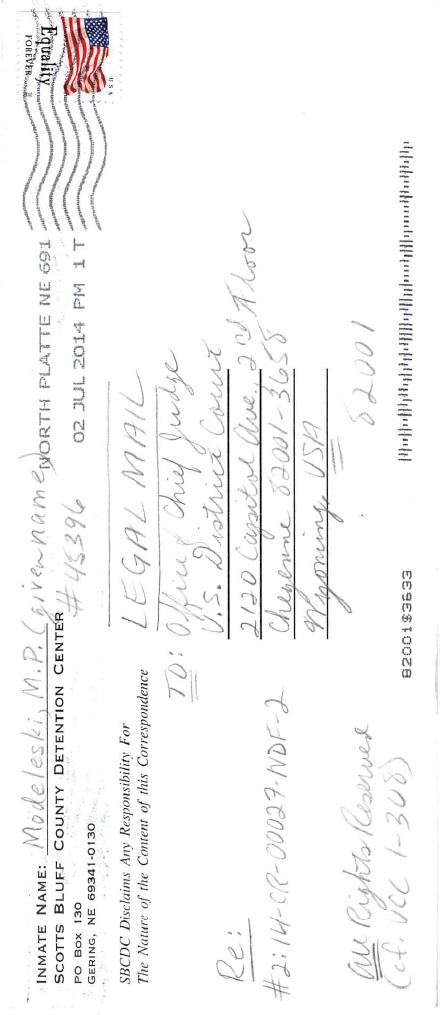 INMATE NAME: Modeleski, M.P. (given name)
SCOTTS BLUFF COUNTY DETENTION CENTER
#45396
PO BOX 130
GERING, NE 69341-0130
NORTH PLATTE NE 691
02 JUL 2014 PM 1 T
USA
Equality
FOREVER
SBCDC Disclaims Any Responsibility For
The Nature of the Content of this Correspondence
LEGAL MAIL
TO: Office, Chief Judge
U.S. District Court
2120 Capitol Ave., 2nd Floor
Cheyenne 82001-3658
Wyoming, USA
82001
Re:
#2:14-CR-00027-NDF-2
All Rights Reserved
(cf. UCC 1-308)
82001$3633